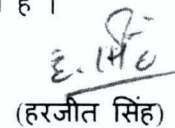 है ।
ह. सिंह
(हरजीत सिंह)